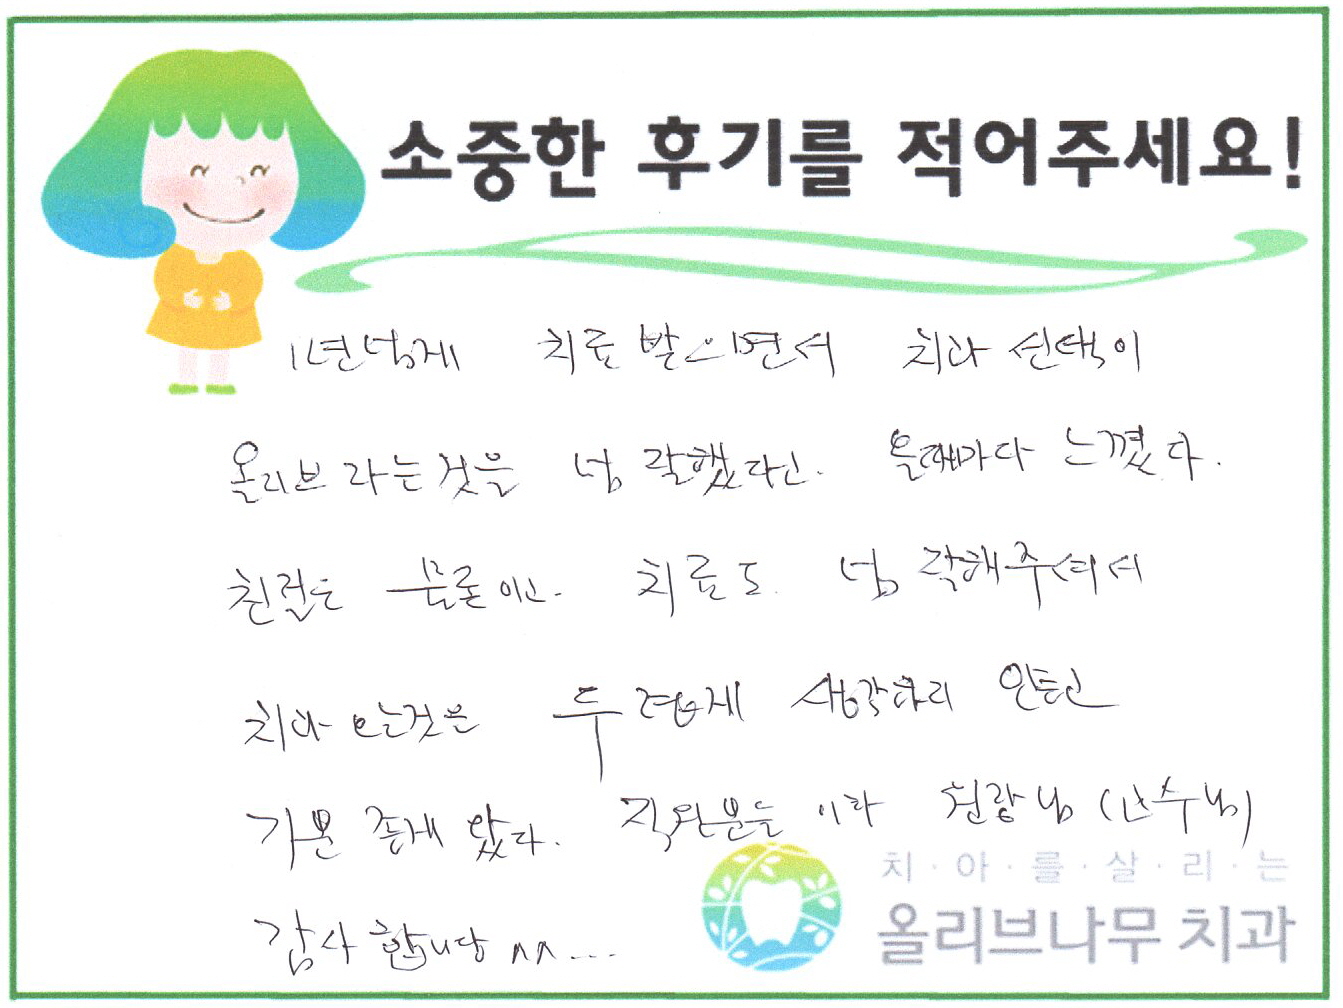 소중한 후기를 적어주세요!
1년넘게 치료 받으면서 치과 선택이
올리브 라는것을 넘 잘했다고. 올때마다 느꼈다.
친절은 물론이고. 치료도. 넘 잘해주셔서
치과 오는것을 두렵게 생각하지 안턴
기분 좋게 왔다. 직원분들 이랑 원장님
감사 합니당 ^^...
치·아·를·살·리·는
올리브나무 치과